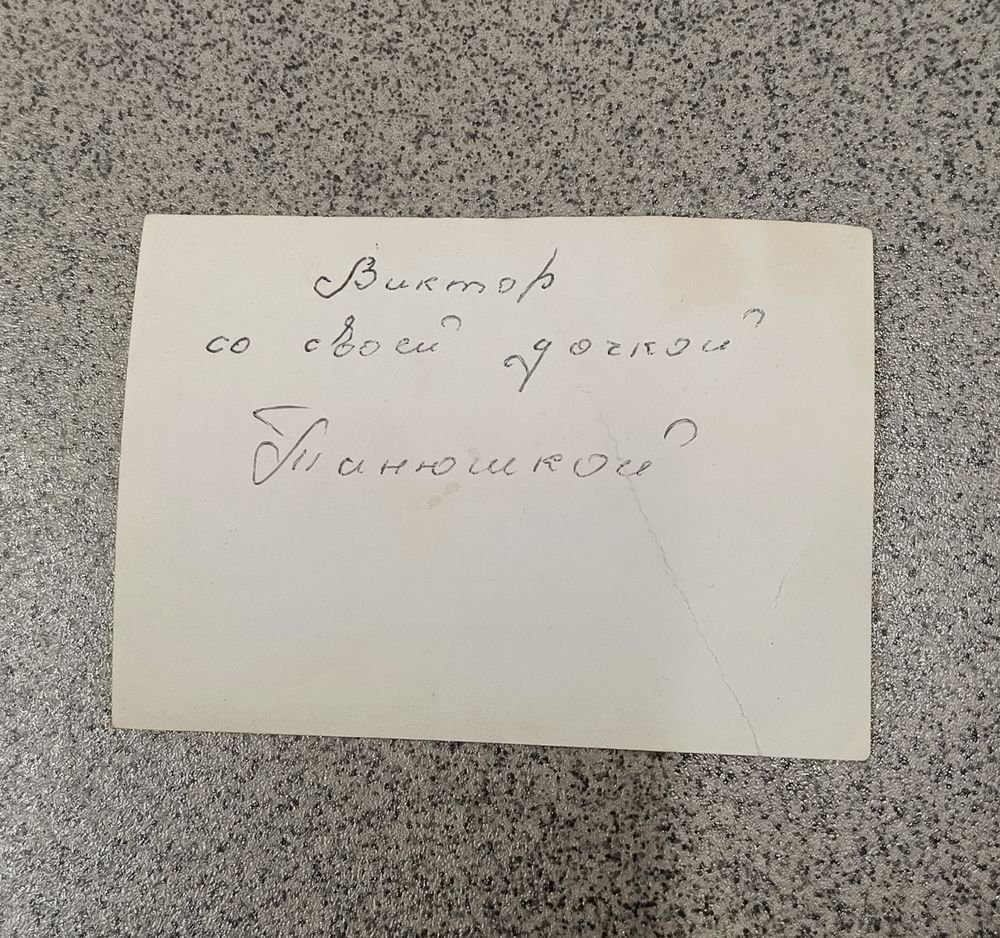 Виктор
со своей дочкой
Танюшкой